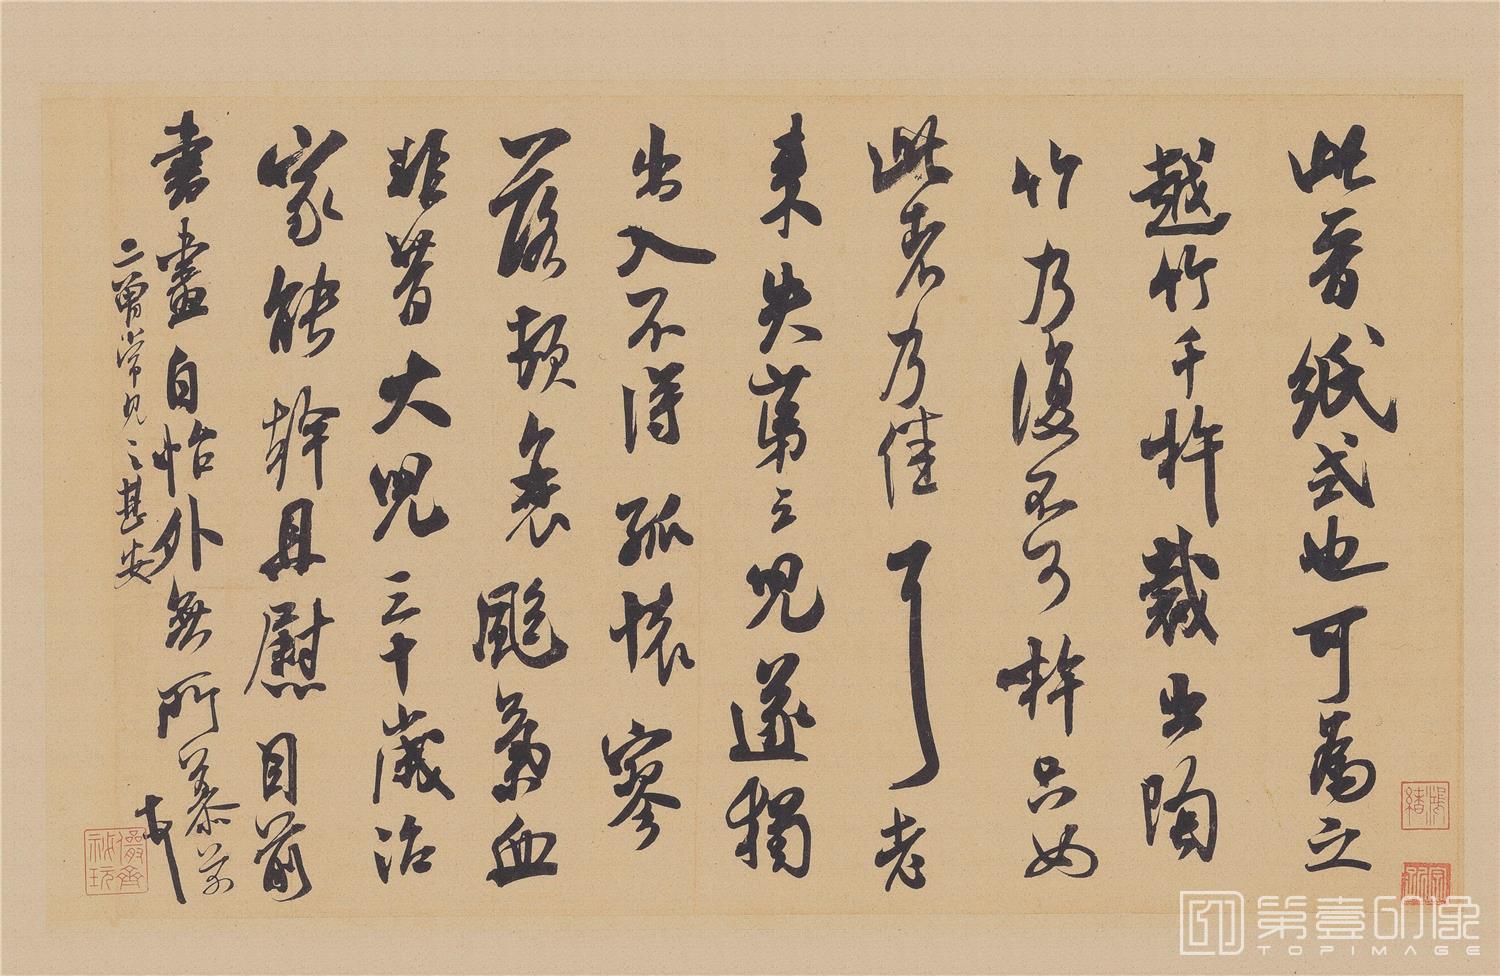 此晉紙式也可為之
越竹千杵裁出陶
竹乃復不可杵只如
此者乃佳耳老
來失第三兒遂獨
出入不得孤懷寥
落頓衰颼氣血
非昔大兒三十歲治
家能幹且慰目前
書畫自怡外無所慕芾
二曾常見之甚安
第壹印像
TOPIMAGE